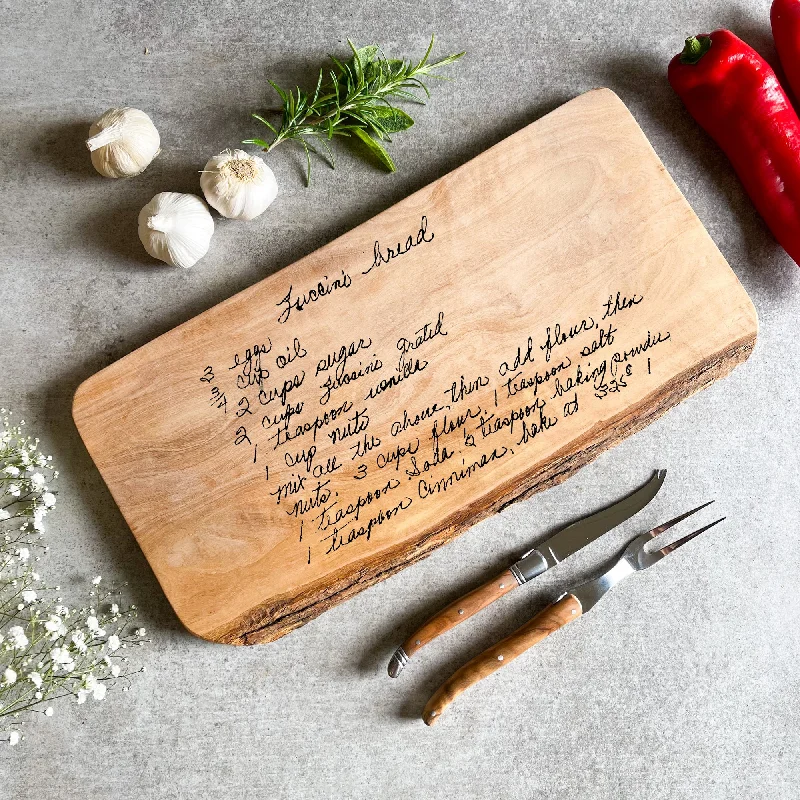 Zuccini bread
3 eggs
3/4 cup oil
2 cups sugar
2 cups Zuccini grated
1 teaspoon vanilla
1 cup nuts
Mix all the above, then add flour, then
nuts. 3 cups flour, 1 teaspoon salt
1 teaspoon Soda 2 teaspoon baking powder
1 teaspoon Cinniman, bake at 325°